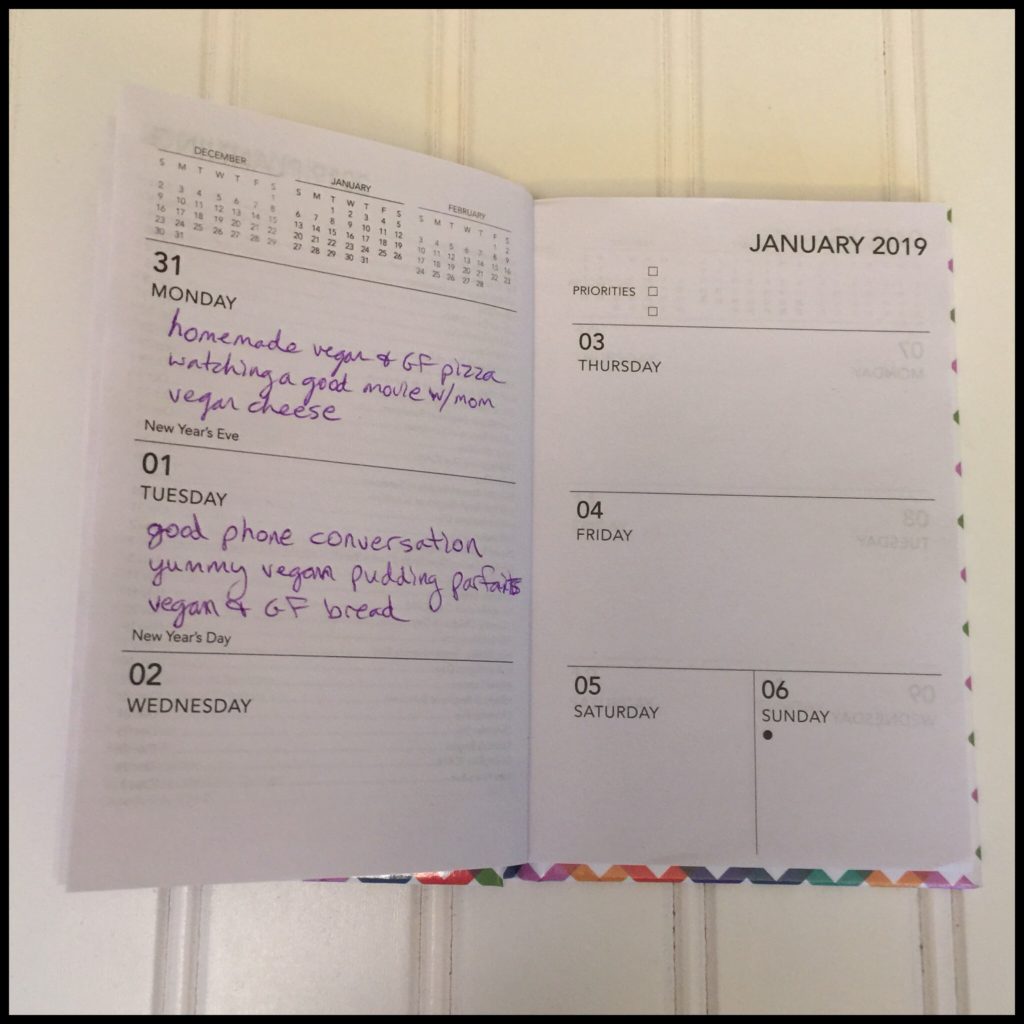 DECEMBER
S M T W T F S
1
2 3 4 5 6 7 8
9 10 11 12 13 14 15
16 17 18 19 20 21 22
23 24 25 26 27 28 29
30 31
JANUARY
S M T W T F S
1 2 3 4 5
6 7 8 9 10 11 12
13 14 15 16 17 18 19
20 21 22 23 24 25 26
27 28 29 30 31
FEBRUARY
S M T W T F S
1 2
3 4 5 6 7 8 9
10 11 12 13 14 15 16
17 18 19 20 21 22 23
24 25 26 27 28
31
MONDAY
homemade vegan & GF pizza
watching a good movie w/mom
vegan cheese
New Year's Eve
01
TUESDAY
good phone conversation
yummy vegan pudding parfaits
vegan & GF bread
New Year's Day
02
WEDNESDAY
JANUARY 2019
PRIORITIES
03
THURSDAY
04
FRIDAY
05
SATURDAY
06
SUNDAY